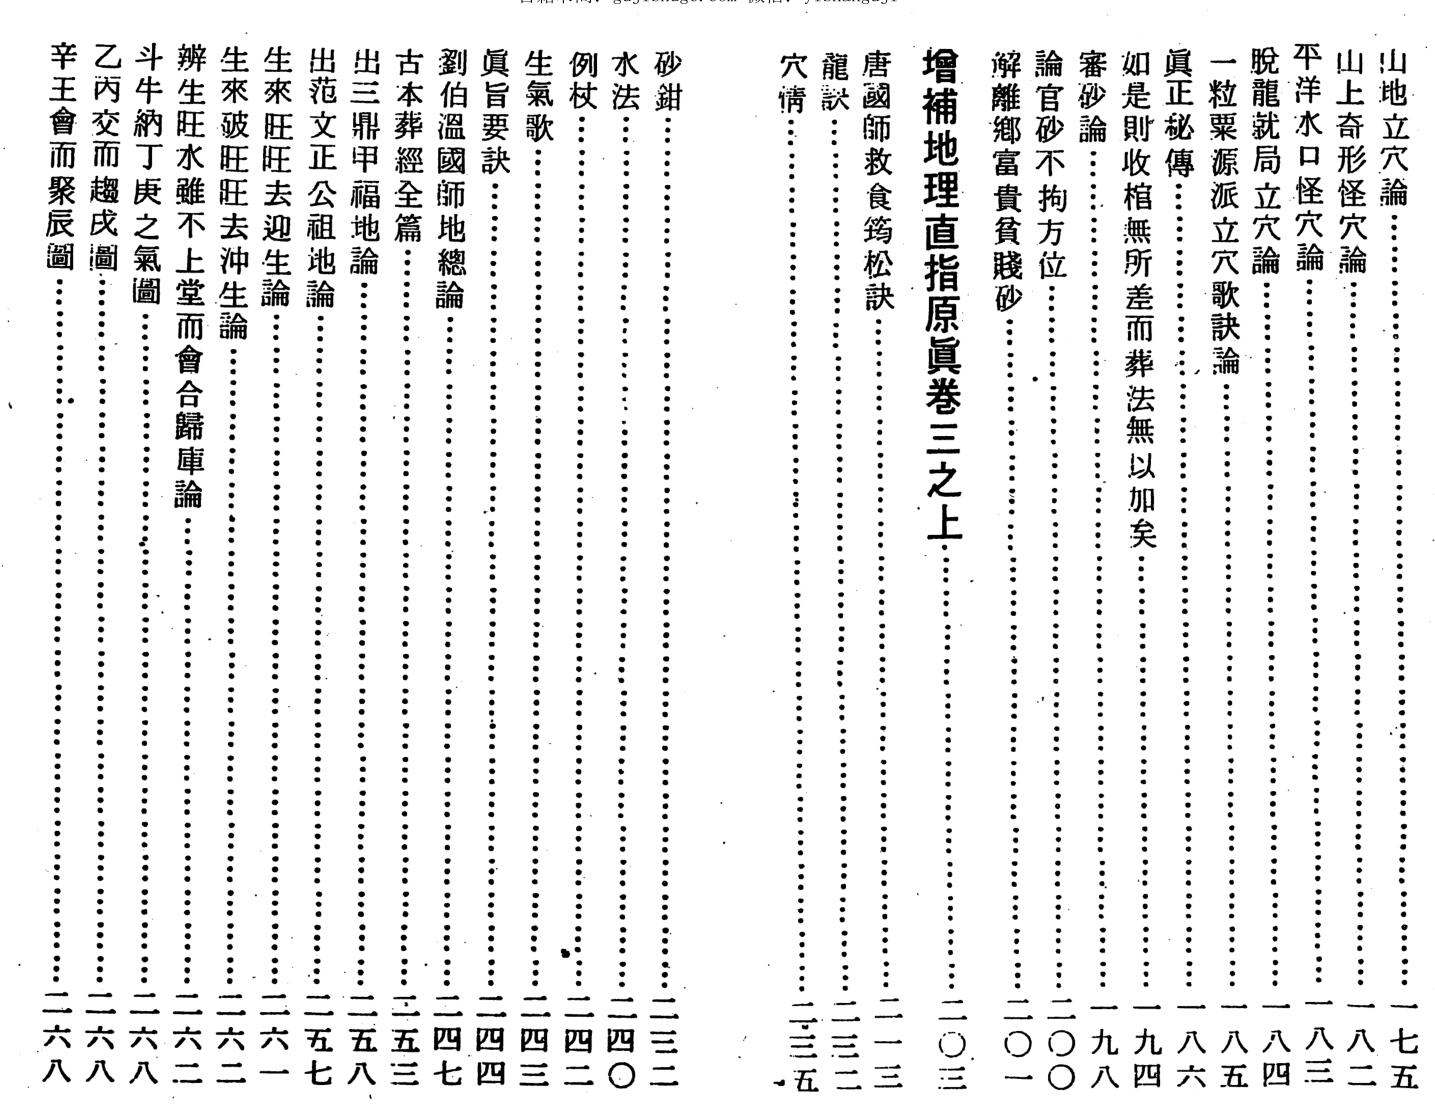 山地立穴論……一七五
山上奇形怪穴論……一八二
平洋水口怪穴論……一八三
脫龍就局立穴論……一八四
一粒粟源派立穴歌訣論……一八五
眞正秘傳……一八六
如是則收棺無所差而葬法無以加矣……一九四
審砂論……一九八
論官砂不拘方位……二〇〇
解離鄉富貴貧賤砂……二〇一
增補地理直指原眞卷三之上……二〇三
唐國師救食筠松訣……二一三
龍訣……二三二
穴情……二三五
砂鉗……二三二
水法……二四〇
例杖……二四二
生氣歌……二四三
眞旨要訣……二四四
劉伯溫國師地總論……二四七
古本葬經全篇……二五三
出三鼎甲福地論……二五八
出范文正公祖地論……二五七
生來旺旺去迎生論……二六一
生來破旺旺去沖生論……二六二
辨生旺水雖不上堂而會合歸庫論……二六二
斗牛納丁庚之氣圖……二六八
乙丙交而趨戌圖……二六八
辛王會而聚辰圖……二六八